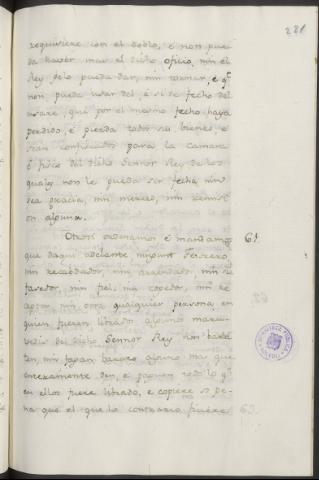 281
requiriere con el doblo, é non pue-
da haver mas el dicho oficio, nin el
Rey gelo pueda dar, nin tornar, é q.e
non pueda usar del, é si de fecho del
usare, que por el mesmo fecho haya
perdido, é pierda todos sus bienes, é
sean confiscados para la camara
é fisco del dicho Sennor Rey de los
quales non le pueda ser fecha, nin
sea gracia, nin merced, nin remisi-
on alguna.
Otrosí ordenamos é mandamos 61.
que daqui adelante ningunt tesorero,
nin recabdador, nin arrendador, nin
fazedor, nin fiel, nin cogedor, nin
nin otra qualquier persona en
quien fueren librados algunos marave-
dis del dicho Sennor Rey non bara-
ten, nin fagan barato alguno mas que
enteramente den, é paguen todo lo q.e
en ellos fuere librado, é
na que el que lo contrario ficiere
BIBLIOTECA PUBLICA
TOLEDO